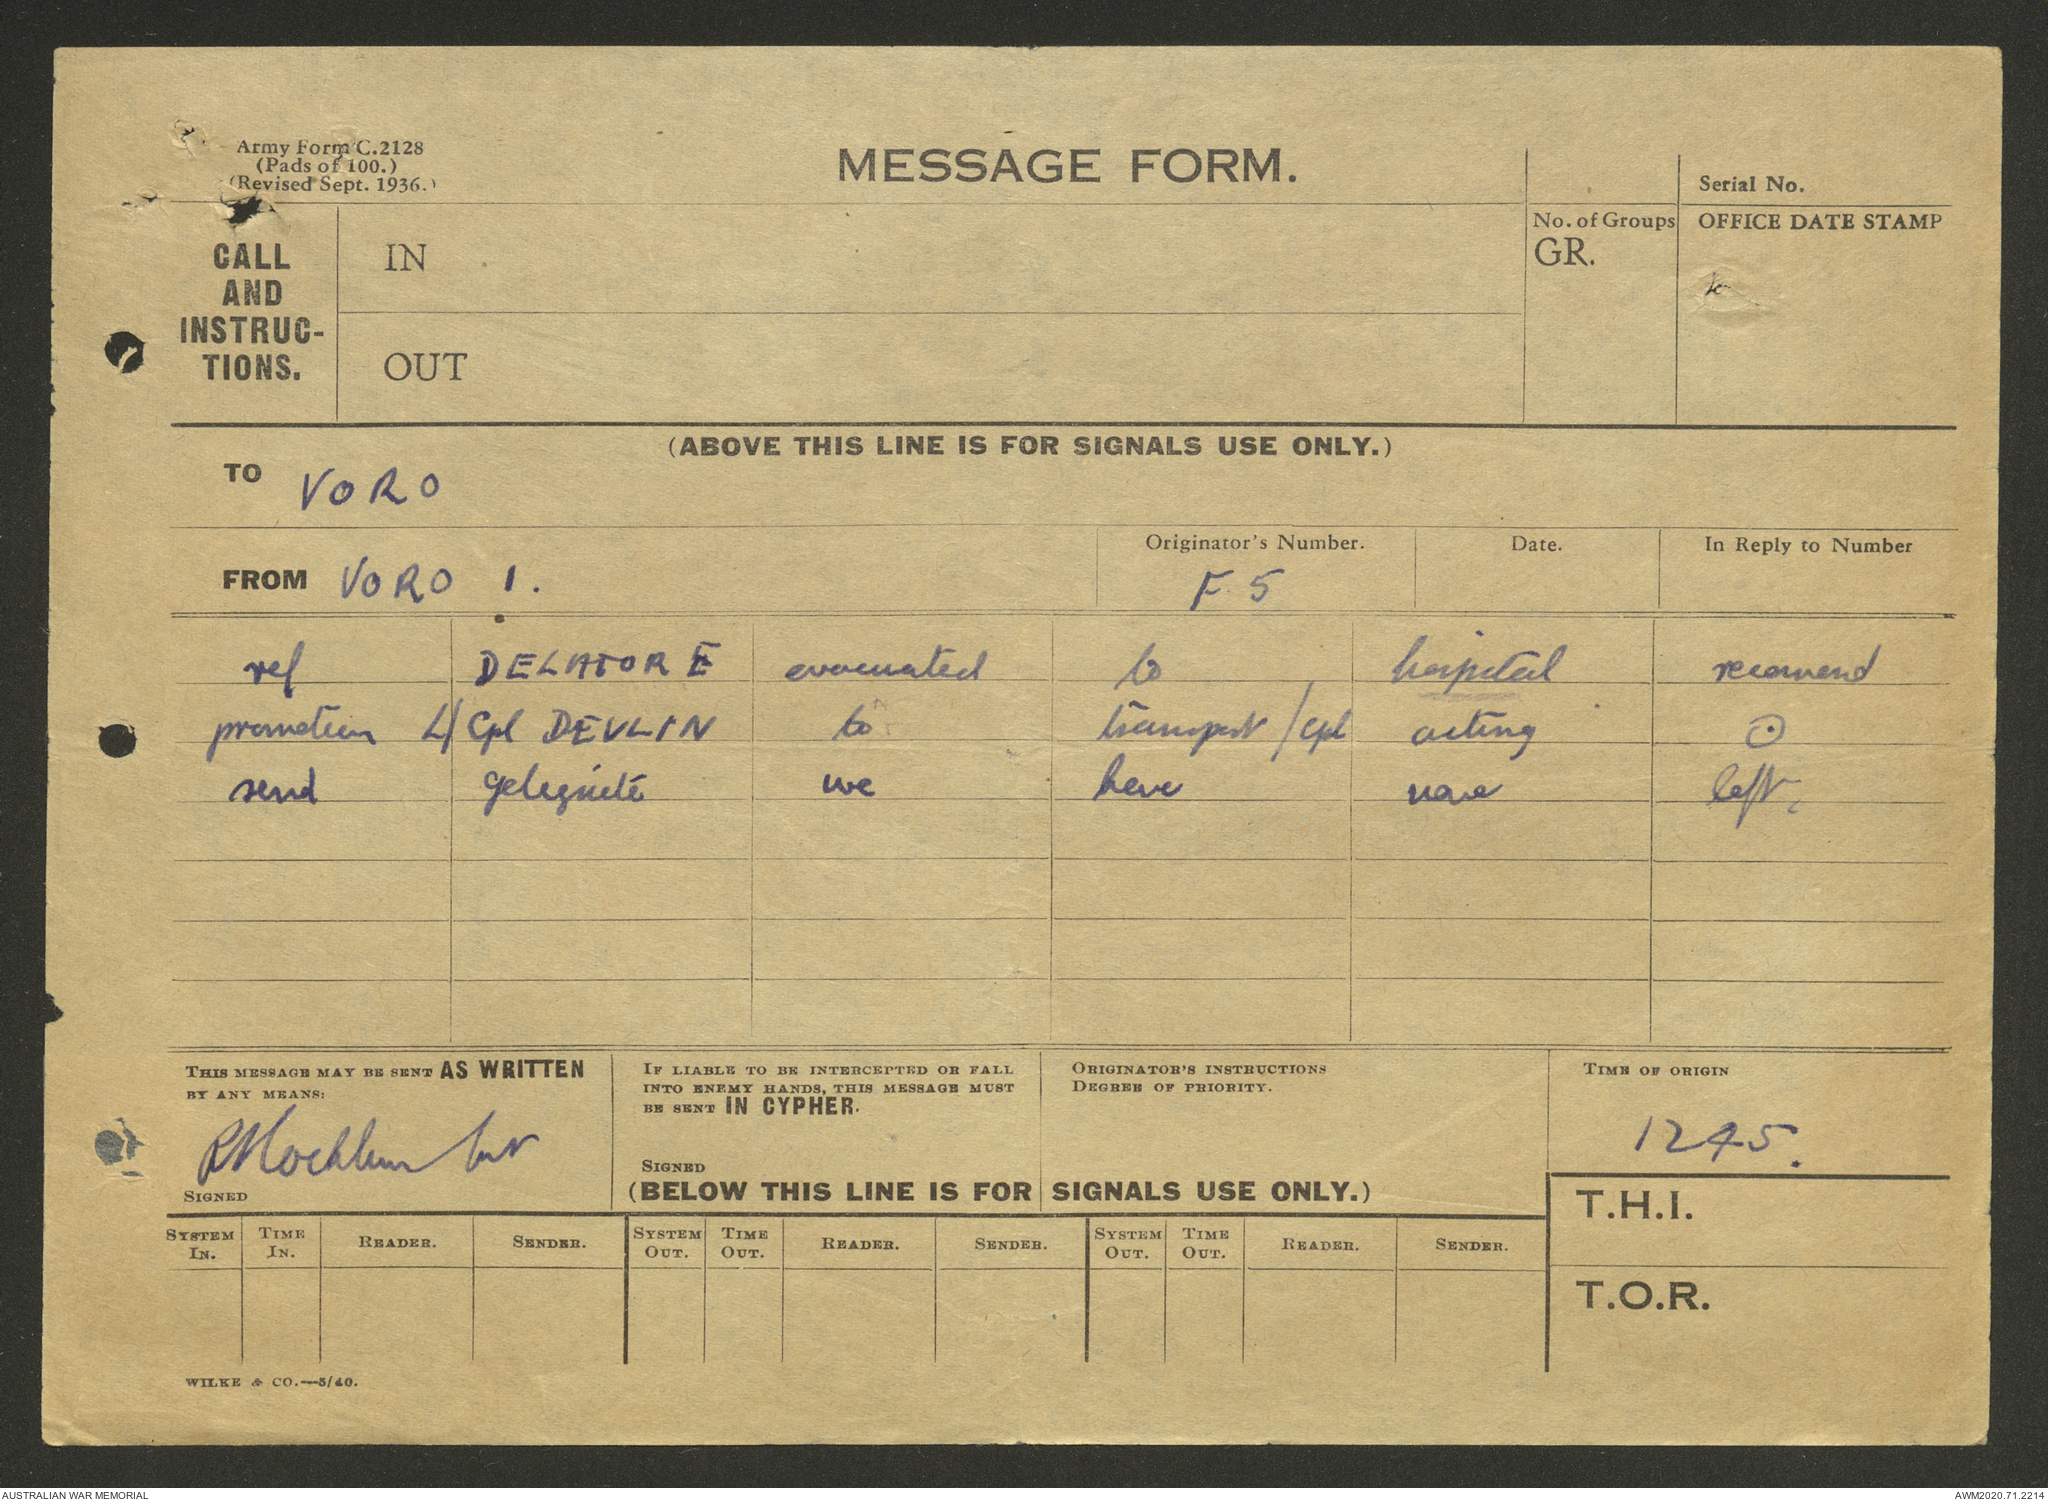 Army Form C.2128
(Pads of 100.)
(Revised Sept. 1936.)
MESSAGE FORM.
Serial No.
CALL AND INSTRUC-TIONS.
IN
OUT
No. of Groups
GR.
OFFICE DATE STAMP
(ABOVE THIS LINE IS FOR SIGNALS USE ONLY.)
TO VORO
FROM VORO 1.
Originator's Number.
F.5
Date.
In Reply to Number
ref DELATORE evacuated to hospital recomend
promotion L/Cpl DEVLIN to transport/cpl acting ⊙
send geleginite we have none left.
THIS MESSAGE MAY BE SENT AS WRITTEN
BY ANY MEANS:
SIGNED
IF LIABLE TO BE INTERCEPTED OR FALL
INTO ENEMY HANDS, THIS MESSAGE MUST
BE SENT IN CYPHER.
SIGNED
ORIGINATOR'S INSTRUCTIONS
DEGREE OF PRIORITY.
TIME OF ORIGIN
1245.
(BELOW THIS LINE IS FOR SIGNALS USE ONLY.)
T.H.I.
T.O.R.
SYSTEM IN. TIME IN. READER. SENDER. SYSTEM OUT. TIME OUT. READER. SENDER. SYSTEM OUT. TIME OUT. READER. SENDER.
WILKE & CO.—5/40.
AUSTRALIAN WAR MEMORIAL
AWM2020.71.2214